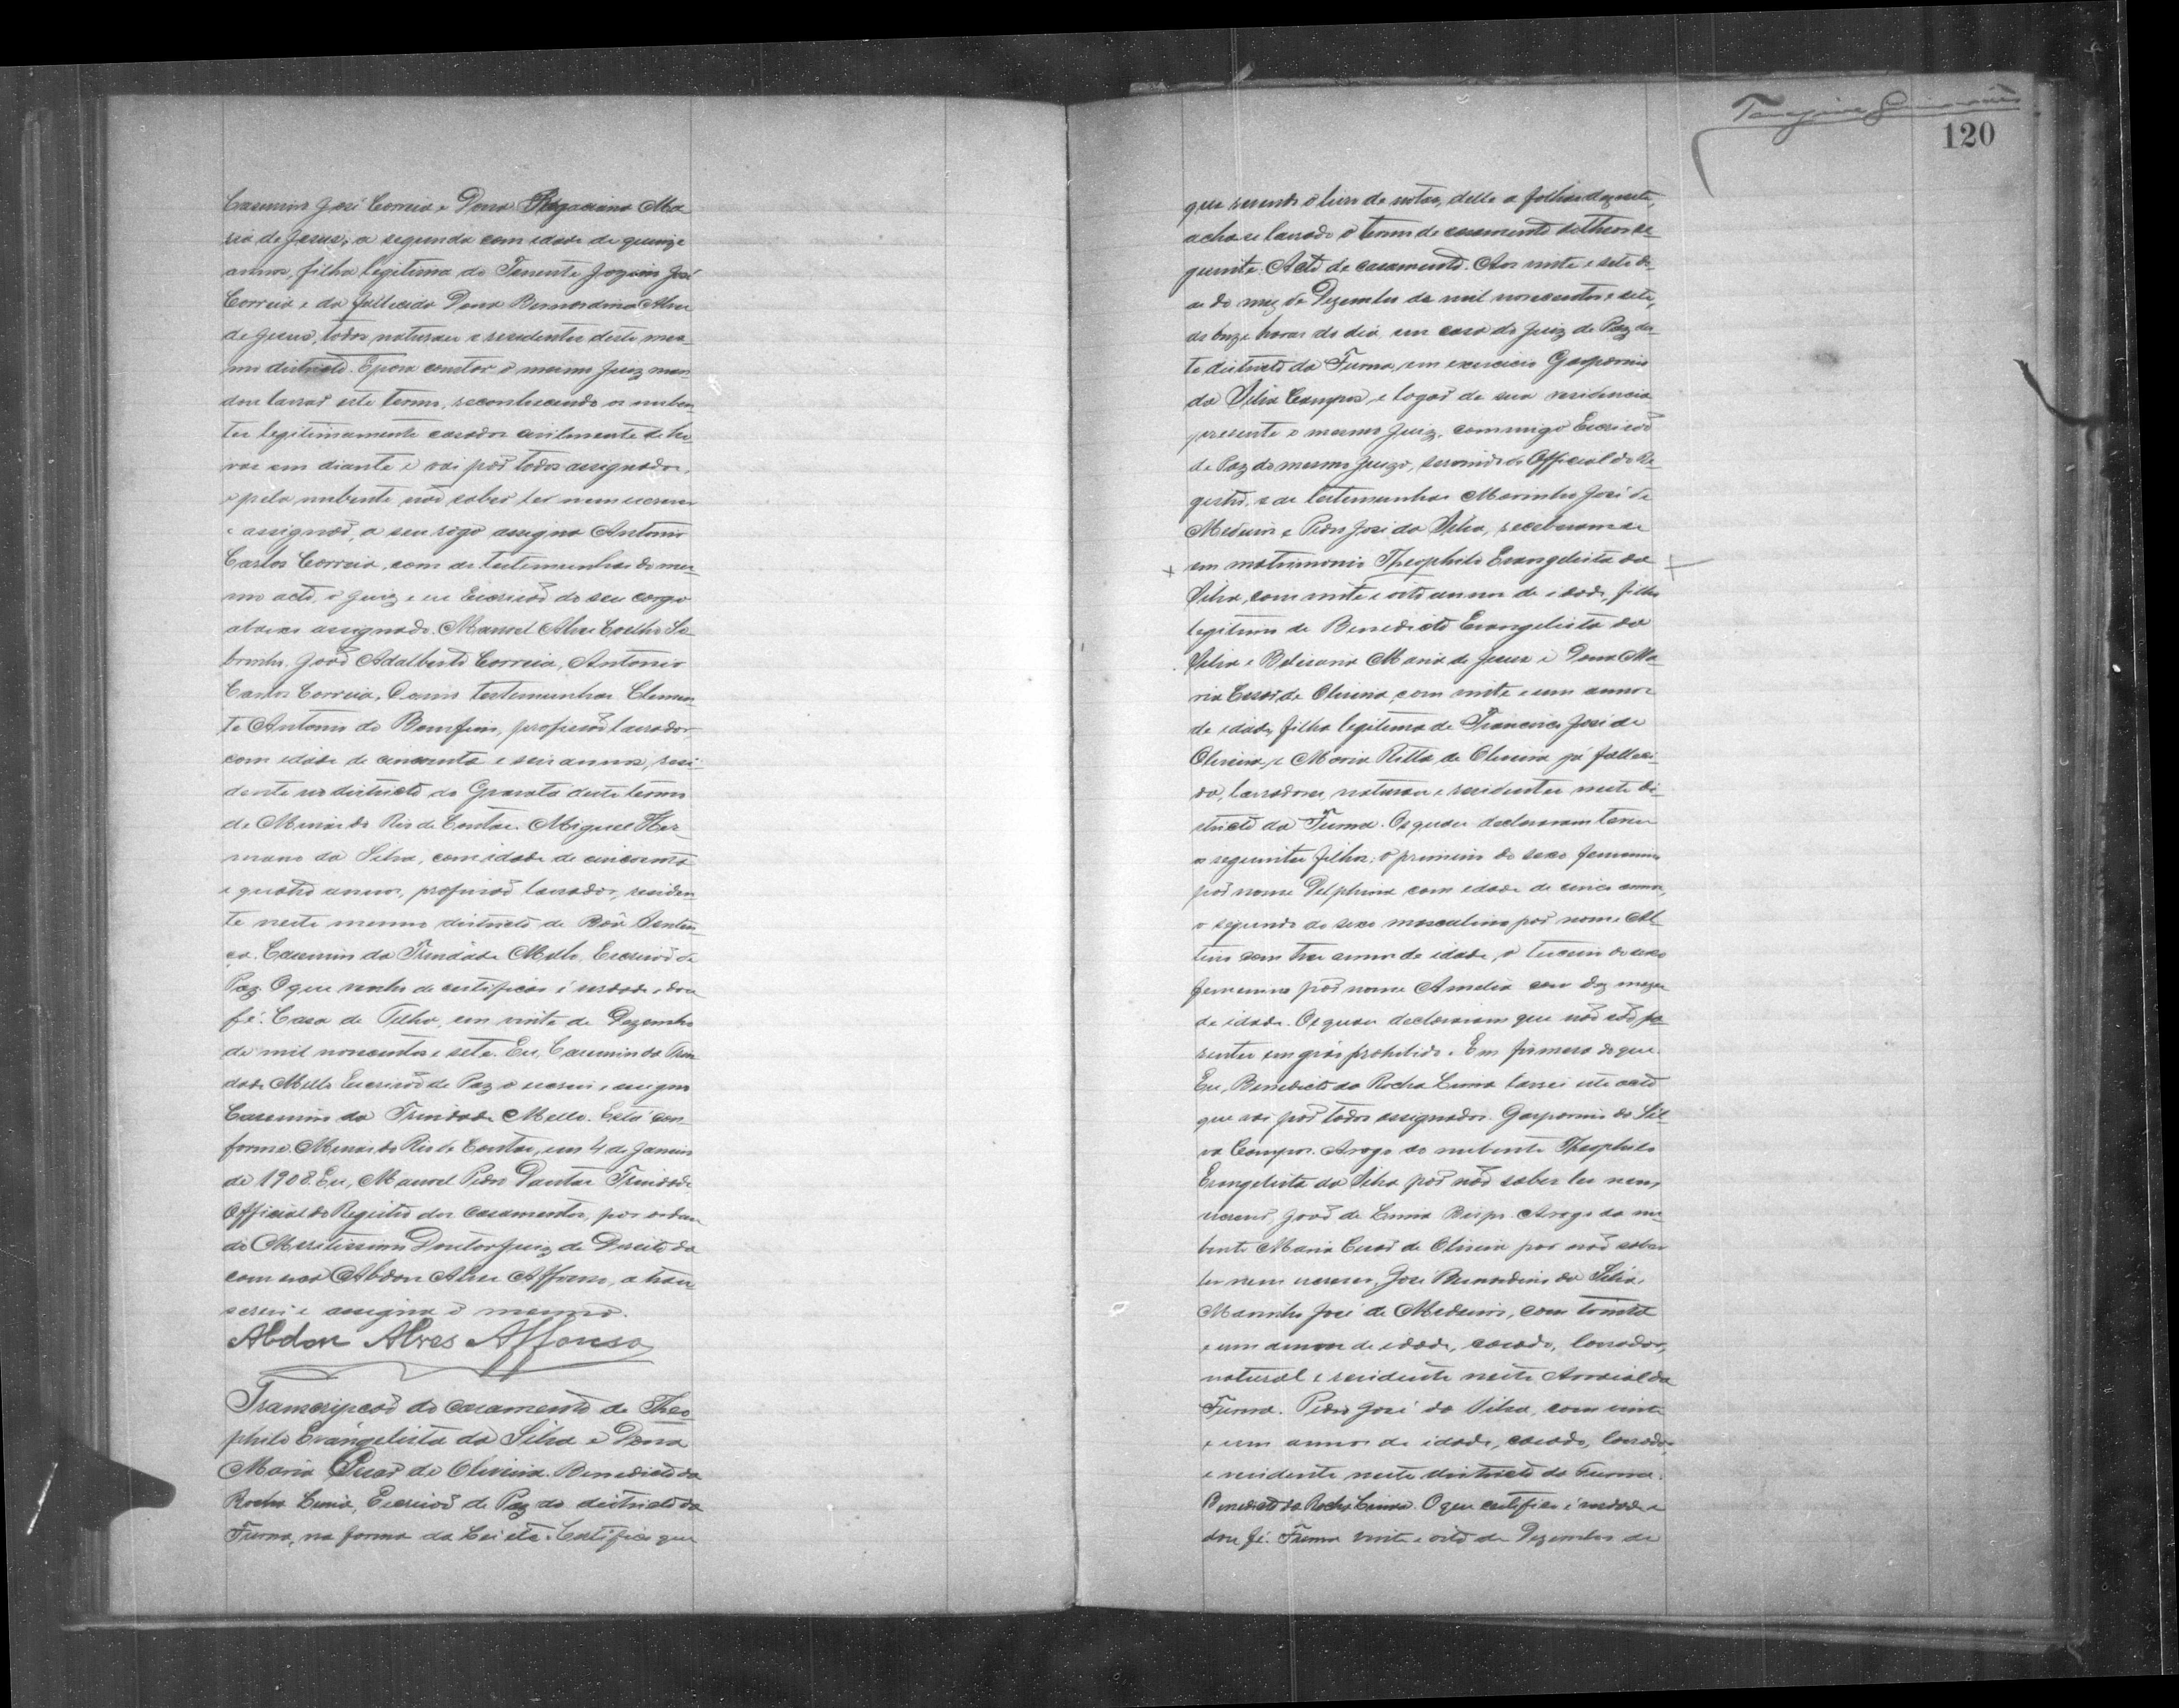 Casemiro José Correia e Dona Ma-
ria de Jesus, a segunda com edade de quinze
annos, filha legitima do Tenente José
Correia e da fallecida Dona Bernardina Alves
de Jesus, todos naturaes e residentes deste mes-
mo districto. E para constar o mesmo Juiz man-
dou lavrar este termo, reconhecendo os nuben-
tes legitimamente casados civilmente de ho-
ras em diante e vai por todos assignados,
e pela nubente não saber ler nem escrever
e assignar, a seu rogo assigna Antonio
Carlos Correia, com as testemunhas do mes-
mo acto, o Juiz e eu Escrivão do seu cargo
abaixo assignado. Manoel Alves Coelho So-
brinho. João Adalberto Correia, Antonio
Carlos Correia, testemunhas Clemen-
te Antonio do Bomfim, profissão lavrador,
com idade de cincoenta e seis annos, resi-
dente no districto do Gravatá deste termo
de Minas do Rio de Contas. Miguel Her-
mano da Silva, com idade de cincoenta
e quatro annos, profissão lavrador, residen-
te neste mesmo districto de Bôa Senten-
ça. Casemiro da Trindade Mello, Escrivão de
Paz. O que venho de certificar é verdade e dou
fé. Casa de Telha, em vinte de Dezembro
de mil novecentos e sete. Eu, Casemiro da Trin-
dade Mello Escrivão de Paz o escrevi e assigno
Casemiro da Trindade Mello. Está con-
forme. Minas do Rio de Contas, em 4 de Janeiro
de 1908. Eu, Manoel Pedro Dantas Trindade
Official do Registro dos Casamentos, por ordem
do Meritissimo Doutor Juiz de Direito da
comarca Abdon Alves Affonso, a trans-
screvi e assigna o mesmo.
Abdon Alves Affonso
Transcripção do casamento de Theo-
philo Evangelista da Silva e Dona
Maria Cesar de Oliveira. Benedicto da
Rocha Lima, Escrivão de Paz do districto da
Furna, na forma da Lei etc. Certifico que
120
que revendo o livro de notas, delle a folhas dezesete,
acha-se lavrado o termo de casamento do theor se-
guinte. Acto de casamento. Aos vinte e sete di-
as do mez de Dezembro de mil novecentos e sete,
as onze horas do dia, em casa do Juiz de Paz des-
te districto da Furna, em exercicio Gasparino
da Silva Campos, e logar de sua residencia
presente o mesmo Juiz, commigo Escrivão
de Paz do mesmo Juizo, servindo de Official do Re-
gistro, e as testemunhas Marinho José de
Medeiros e Pedro José da Silva, receberam-se
em matrimonio Theophilo Evangelista da
Silva, com vinte e oito annos de edade, filho
legitimo de Benedicto Evangelista da
Silva e Belisaria Maria de Jesus e Dona Ma-
ria Cesar de Oliveira, com vinte e um annos
de edade, filha legitima de Francisco José de
Oliveira, e Maria Ritta de Oliveira já falleci-
da, lavradores, naturaes e residentes neste di-
stricto da Furna. Os quaes declararam terem
os seguintes filhos: o primeiro do sexo feminino
por nome Delphina com edade de cinco annos,
o segundo do sexo masculino por nome Al-
tino com tres annos de idade, o terceiro do sexo
feminino por nome Amelia com dez mezes
de idade. Os quaes declararam que não são pa-
rentes em gráo prohibido. Em firmeza do que
Eu, Benedicto da Rocha Lima lavrei este acto
que vai por todos assignados. Gasparino da Sil-
va Campos. Arogo do nubente Theophilo
Evangelista da Silva por não saber ler nem
escrever, João de Lima Arogo da nu-
bente Maria Cesar de Oliveira por não saber
ler nem escrever, José Bernardino da Silva.
Marinho José de Medeiros, com trinta
e um annos de edade, casado, lavrador,
natural e residente neste Arraial da
Furna. Pedro José da Silva, com vinte
e um annos de idade, casado, lavrador
e residente neste districto da Furna.
Benedicto da Rocha Lima. O que certifico é verdade e
dou fé. Furna vinte e oito de Dezembro de